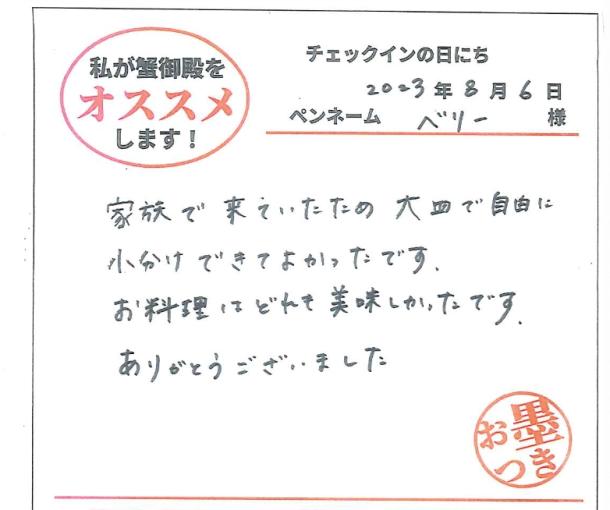 私が蟹御殿を
オススメ
します!
チェックインの日にち
2023年8月6日
ペンネーム ベリー 様
家族で来ていたため 大皿で自由に
小分けできてよかったです.
お料理はどれも美味しかったです.
ありがとうございました
お墨
つき